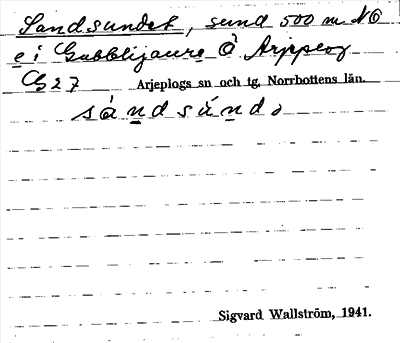 Sandsundet, sund 500 m NO
e i Gubblijaure Ö Arjeplog
G27 Arjeplogs sn och tg, Norrbottens län.
sándsúndə
Sigvard Wallström, 1941.